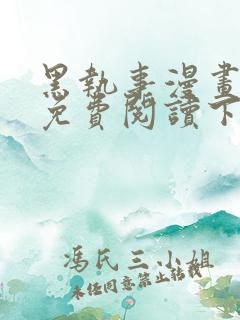 黑執事漫畫
免費閱讀下
馮氏三小姐
未经同意禁止转载